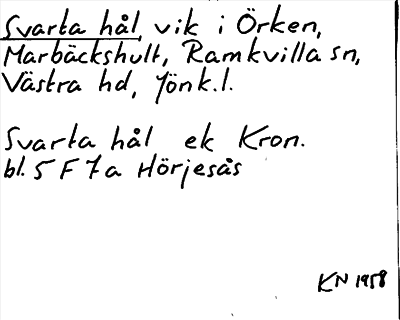 Svarta hål, vik i Örken,
Marbäckshult, Ramkvilla sn,
Västra hd, Jönk.l.
Svarta hål ek Kron.
bl. 5 F 7a Hörjesås
KN 1958